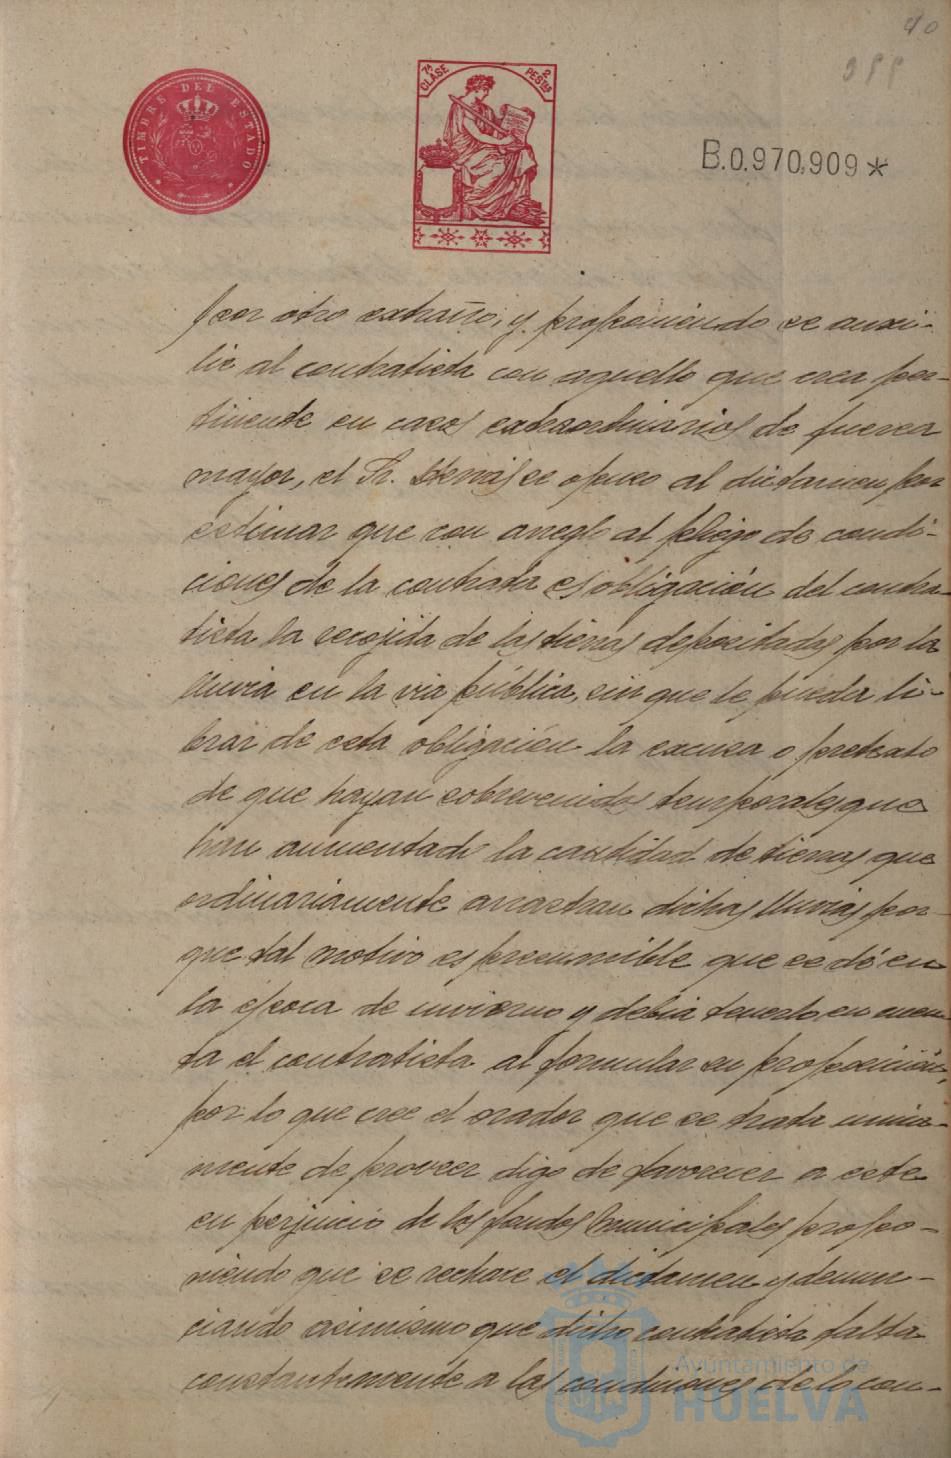 40
TIMBRE DEL ESTADO
7ª CLASE
2 PESTAS
B.0.970,909*
por otro extraño, y proponiendo se auxi-
lie al contratista con aquello que crea per-
tinente en casos extraordinarios de fuerza
mayor, el Sr. se opuso al dictamen por
estimar que con arreglo al pliego de condi-
ciones de la contrata es obligación del contra-
tista la recojida de las tierras depositadas por la
lluvia en la via pública, sin que le pueda li-
brar de esta obligación la excusa o pretexto
de que hayan sobrevenido temporales que
han aumentado la cantidad de tierras que
ordinariamente arrastran dichas lluvias por-
que tal motivo es presumible que se dé en
la época de invierno y debia tenerlo en cuen-
ta el contratista al formular su proposición,
por lo que cree el orador que se trata unica-
mente de proveer digo de favorecer a este
en perjuicio de los fondos Municipales propo-
niendo que se rechace el dictamen y denun-
ciando asimismo que dicho contratista falta
constantemente a las condiciones de lo con-
Ayuntamiento de
HUELVA